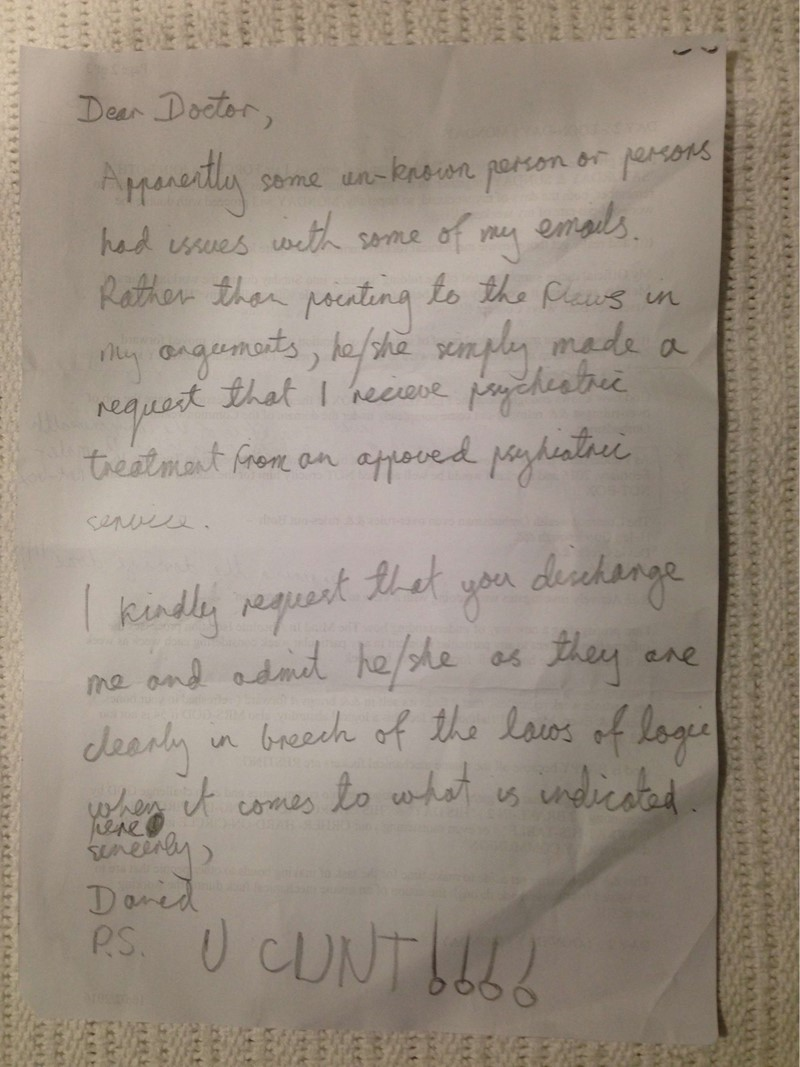 Dear Doctor,
Apparently some un-known person or persons
had issues with some of my emails.
Rather than pointing to the flaws in
my arguments, he/she simply made a
request that I recieve psychiatric
treatment from an appoved psyhiatric
service.
I kindly request that you discharge
me and admit he/she as they are
clearly in breech of the laws of logic
when it comes to what is indicated.
here
sincerly,
David
P.S. U CUNT!!!!